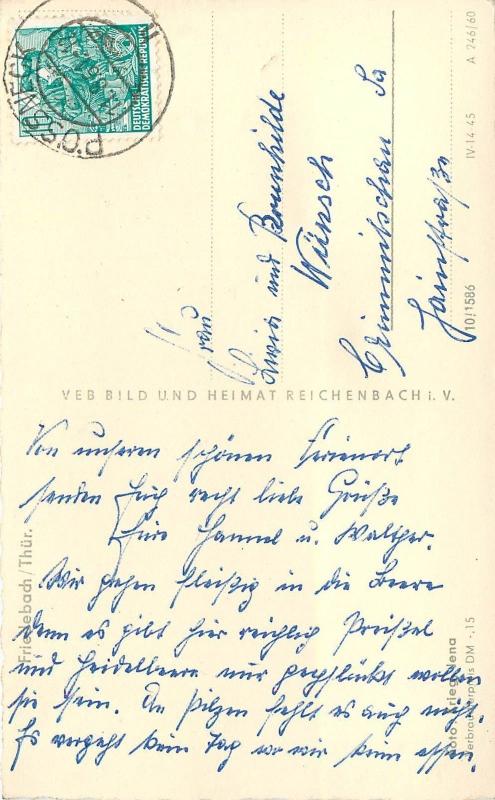 PÖSSNECK
DEUTSCHE
DEMOKRATISCHE REPUBLIK
Frau
Livia und Brunhilde
Wünsch
Crimmitschau Sa
Hainstraße
VEB BILD UND HEIMAT REICHENBACH i. V.
A 246/60
IV-14-45
10/1586
Von unseren schönen Ferienort
senden Euch recht liebe Grüße
Eure Hannel u. Walther.
Wir gehen fleißig in die Beere
denn es gibt hier reichlich Preißel
und Heidelbeere nur gepflückt wollen
sie sein. An Pilzen fehlt es auch nicht.
Es vergeht kein Tag wo wir keine essen.
Friedebach/Thür.
Foto Krieg, Jena
Verbraucherpreis DM -.15